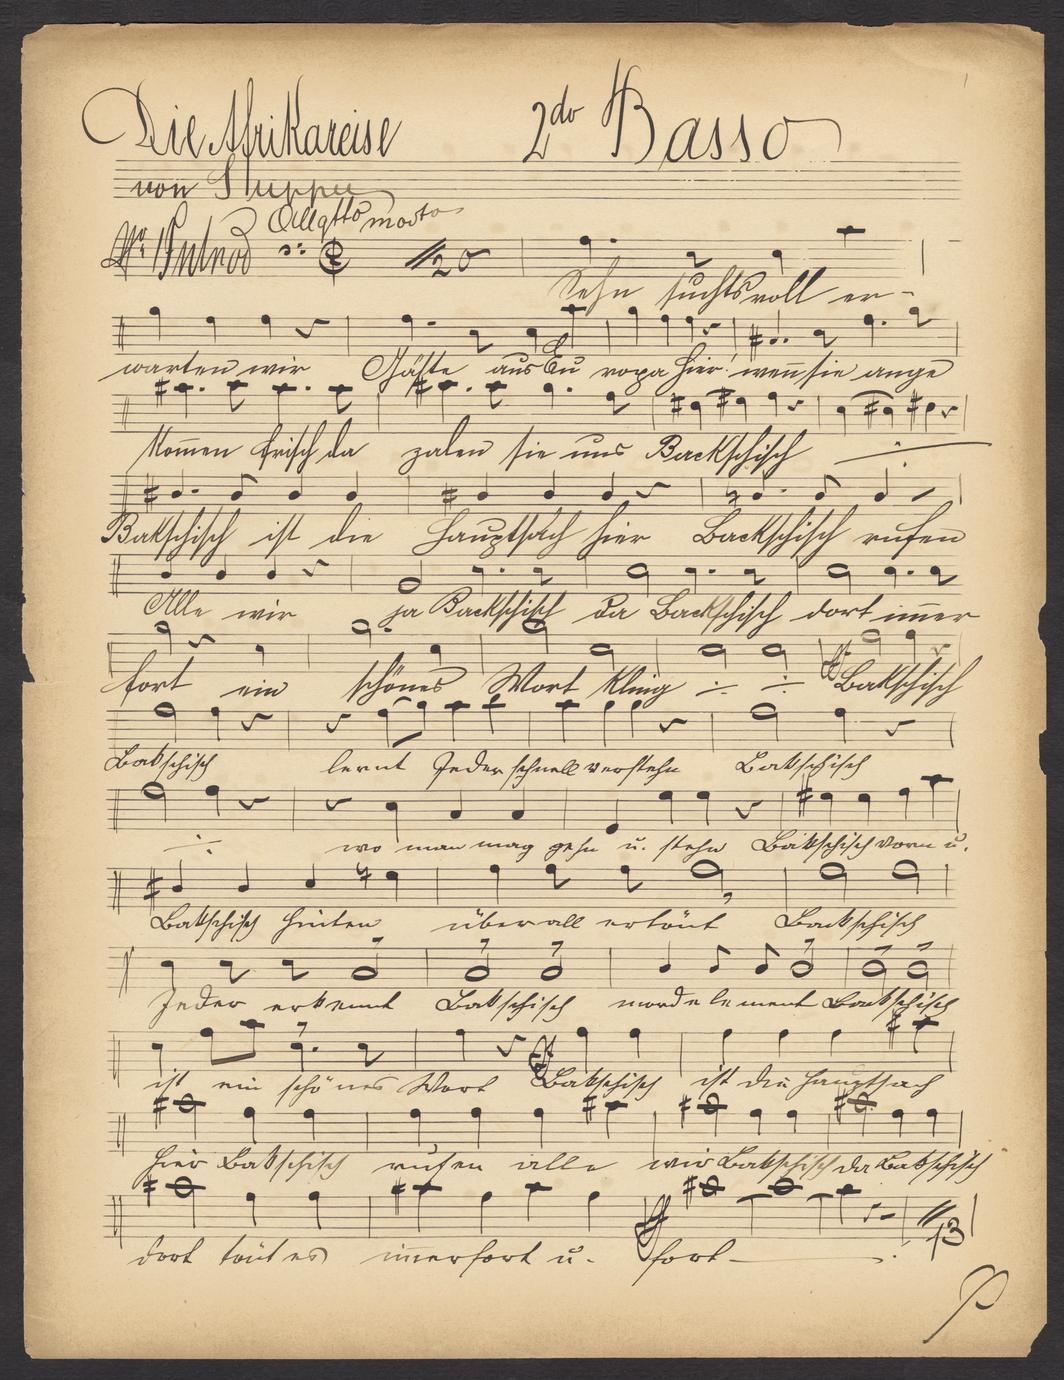 Die Afrikareise 2do Basso
von Suppee
No 1 Introd Allgtto modto 20
Sehn suchtsvoll er-
warten wir Gäste aus Eu ropa hier! wen̄ sie ange
kom̄en frisch da zalen sie uns Backschisch
Bakschisch ist die Hauptsach hier Backschisch rufen
Alle wir ja Backschisch da Backschisch dort im̄er
fort ein schönes Wort kling Bakschisch
Bakschisch lernt Jeder schnell verstehn Bakschisch
wo man mag gehn u. stehn Bakschisch vorn u.
Bakschisch hinten überall ertönt Backschisch
Jeder erkennt Bakschisch mordelement Backschisch
ist ein schönes Wort Bakschisch ist die Hauptsach
hier Bakschisch rufen alle wir Bakschisch da Bakschisch
dort tönt es im̄erfort u. fort 13